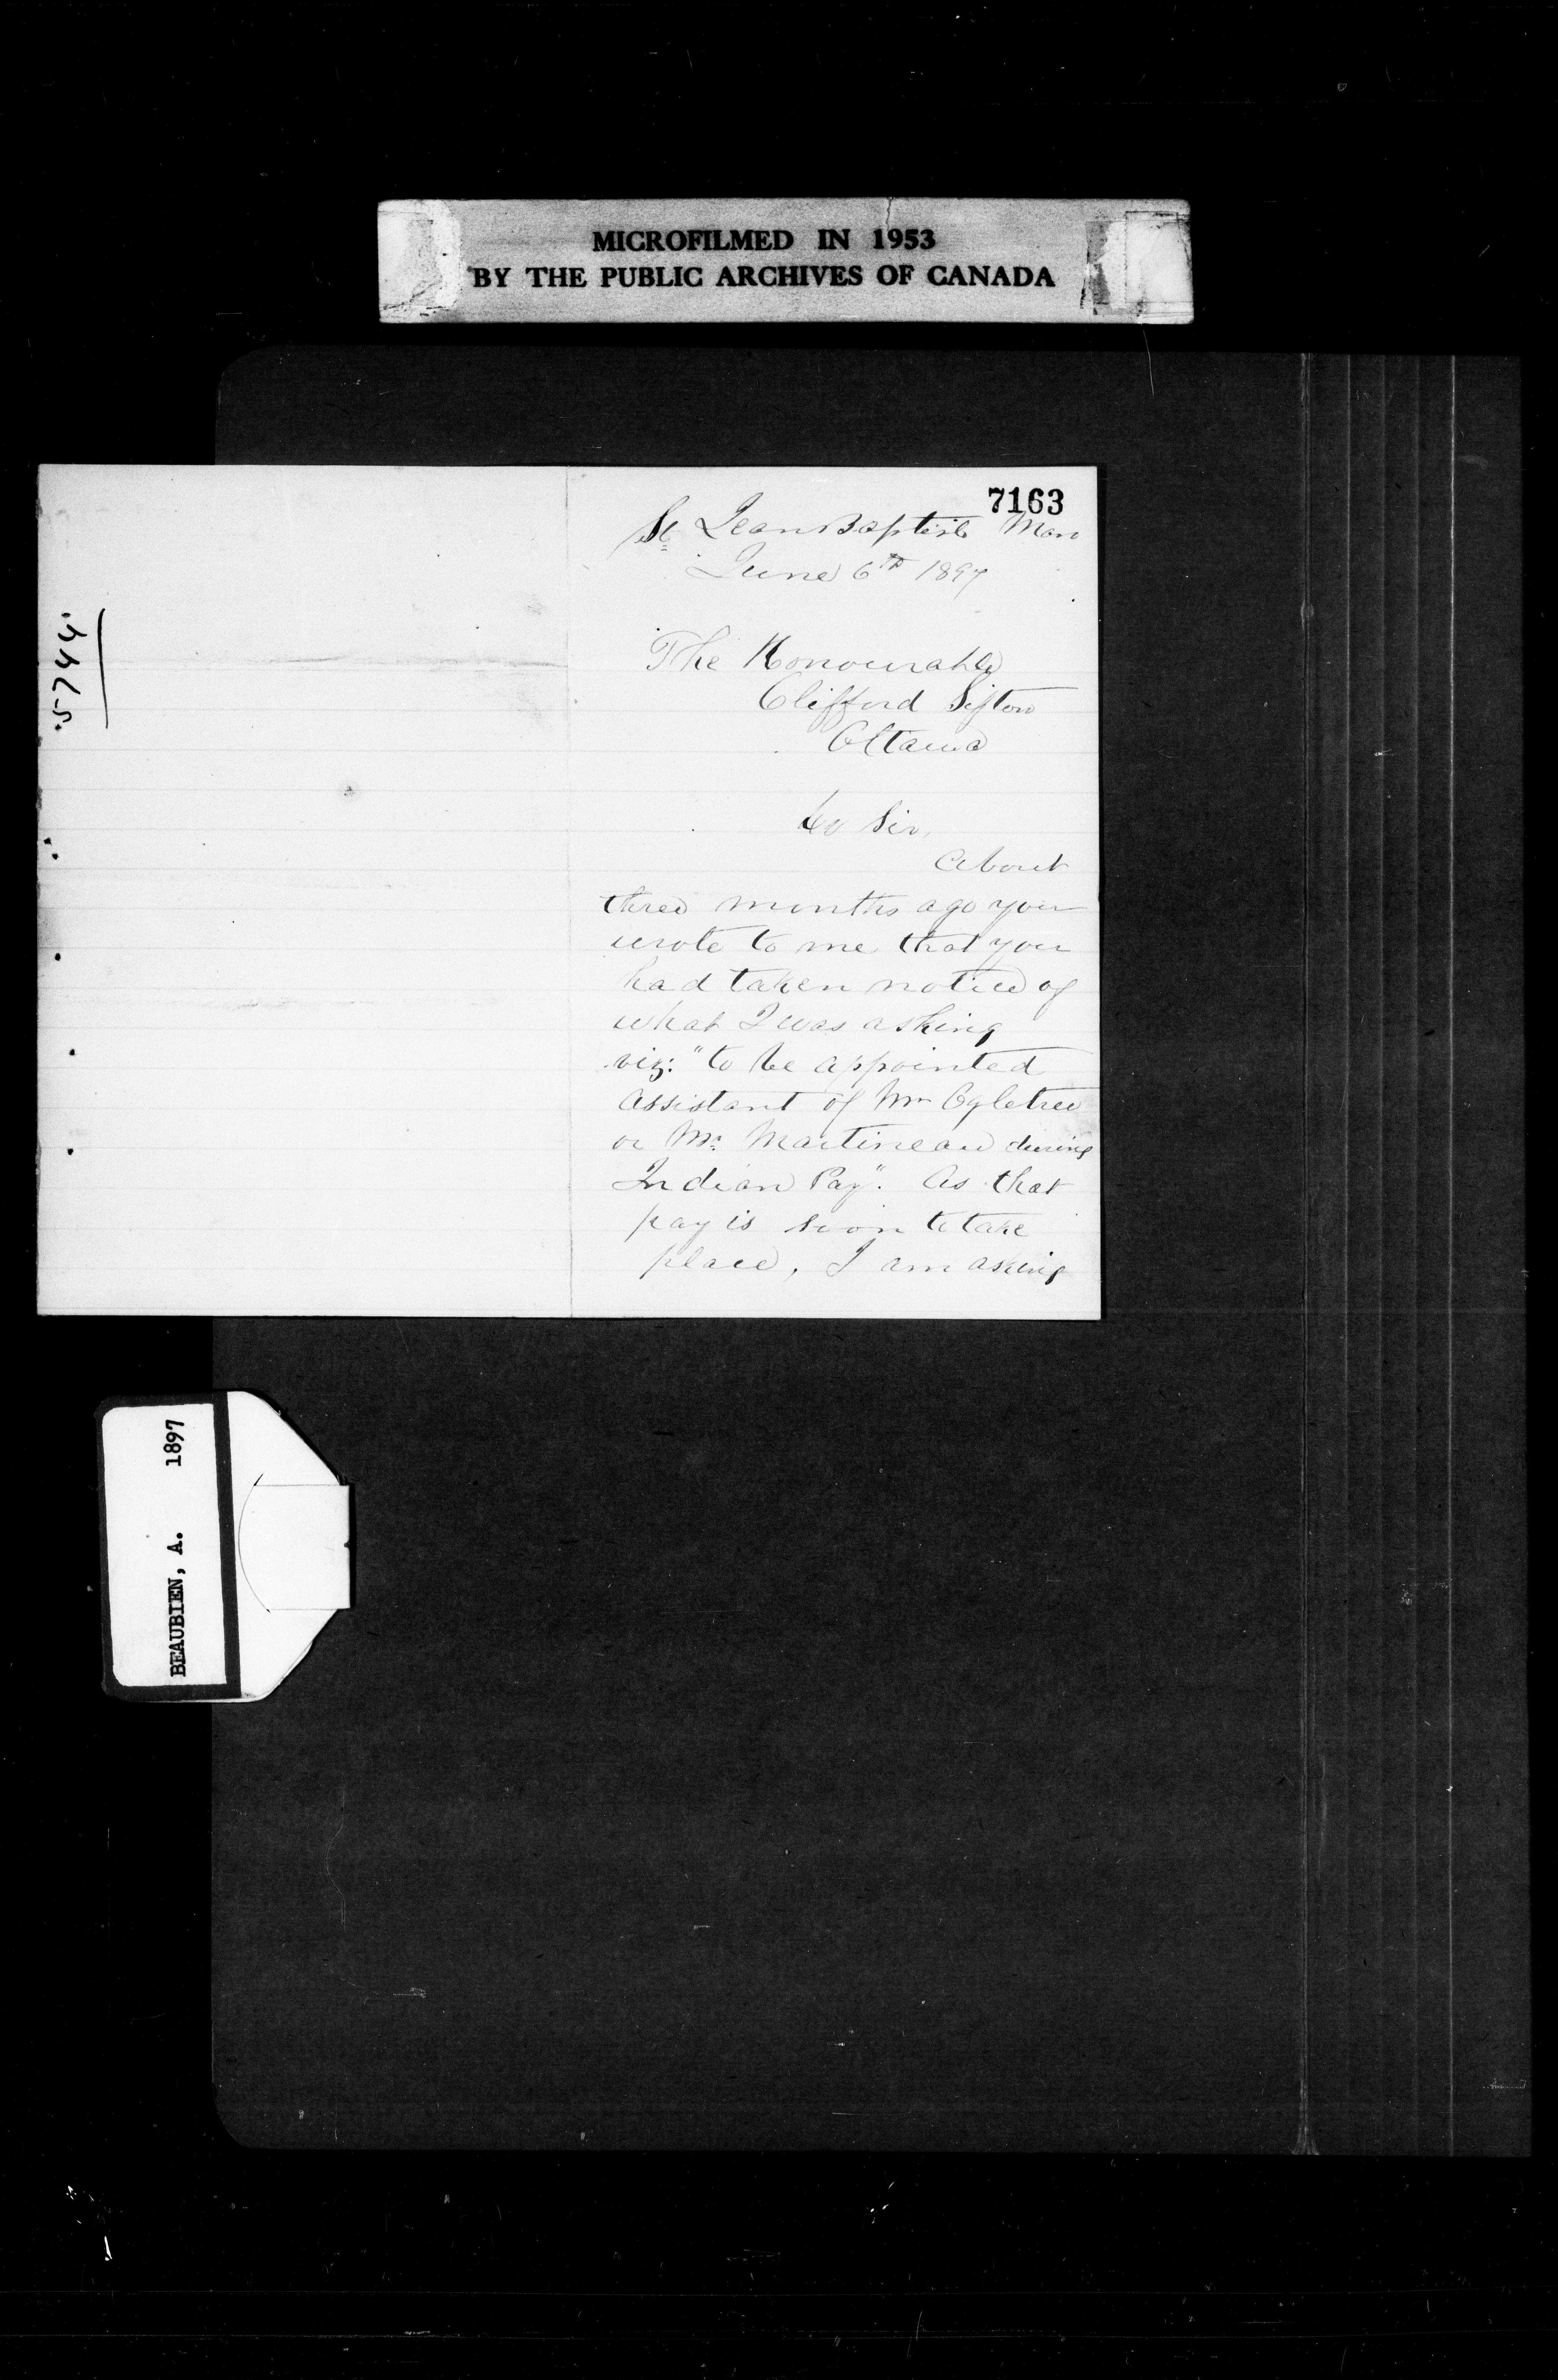 MICROFILMED IN 1953
BY THE PUBLIC ARCHIVES OF CANADA
7163
St Jean Baptiste Man
June 6th 1897
The Honourable
Clifford Sifton
Ottawa
Sir,
About
three months ago you
wrote to me that you
had taken notice of
what I was asking
viz: "to be appointed
assistant of Mr Ogletree
or Mr. Martineau during
Indian Pay". As that
pay is soon to take
place, I am asking
5744
BEAUBIEN, A. 1897